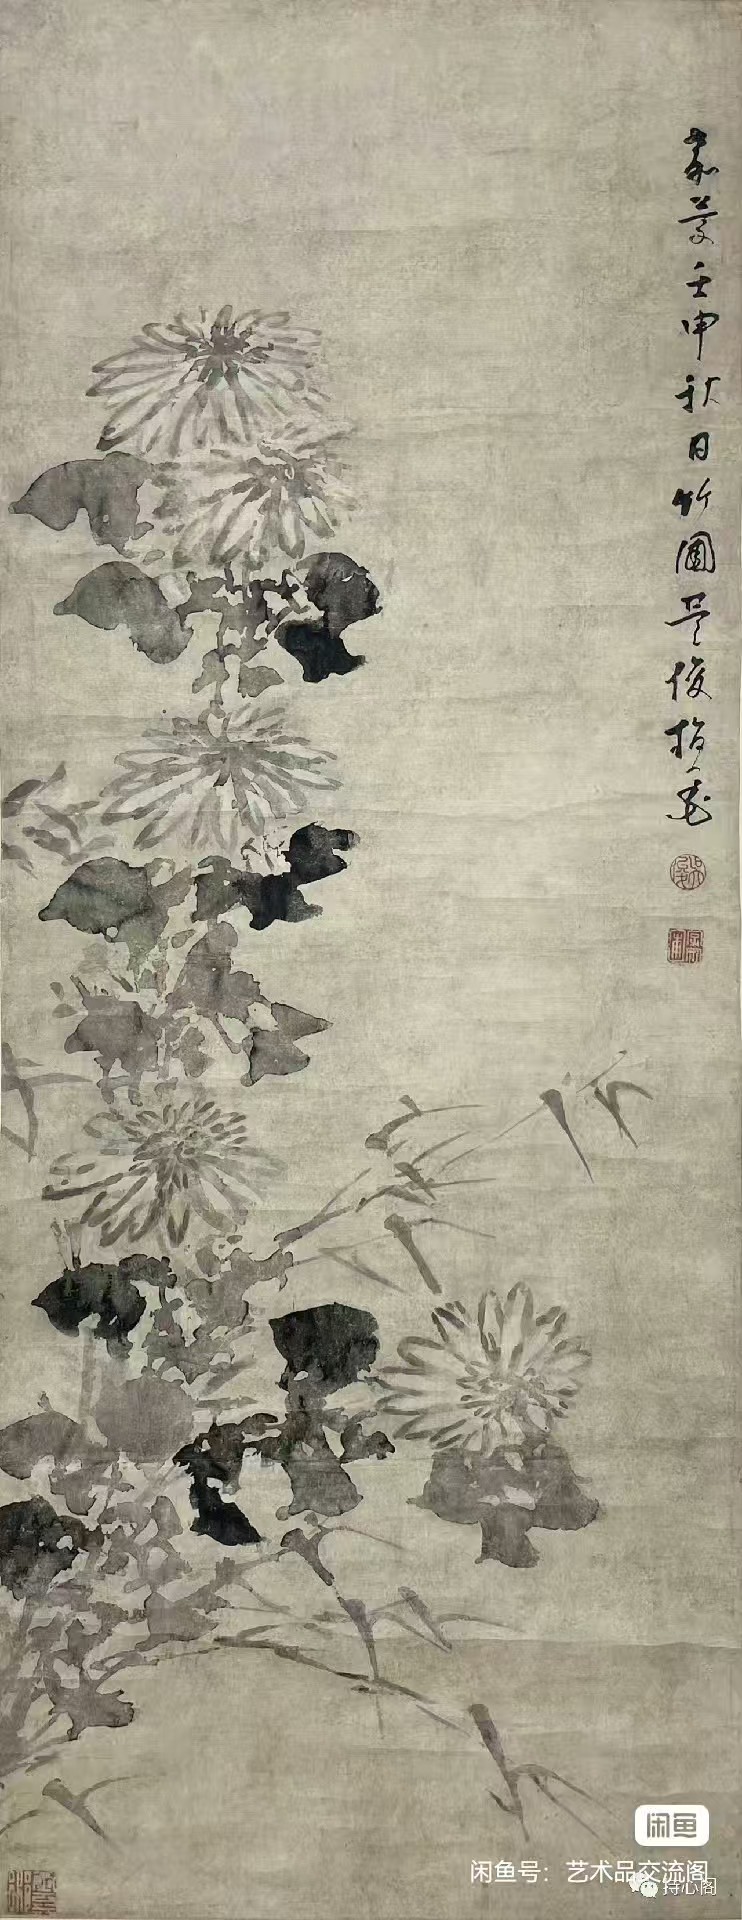 嘉慶壬申秋日竹圃吴俊指畫
闲鱼
闲鱼号：艺术品交流阁
持心阁